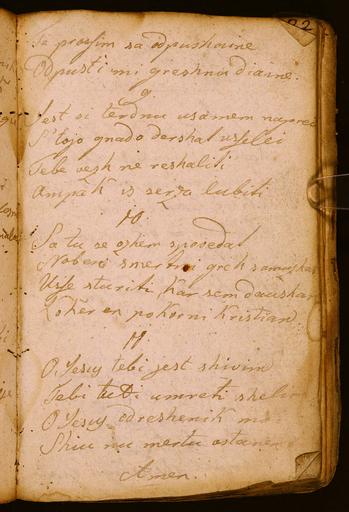 22
Te prossim sa odpushzhaine
Odpusti mi greshnu diaine.
9
Jest si terdnu usamem naprei
S' tojo gnado dershal usselei
Tebe vezh ne reshaliti
Ampak is serza lubiti
10.
Sa tu se ozhem spovedat
Noben smertni greh samujhat
Usse sturiti, kar sem daushan
Koker en pokorni Kristian.
11
O Jesus tebi jest shivim
Tebi tudi umreti shelim
O Jesus odreshenik mi
Shiu nu mertu ostanem
Amen.